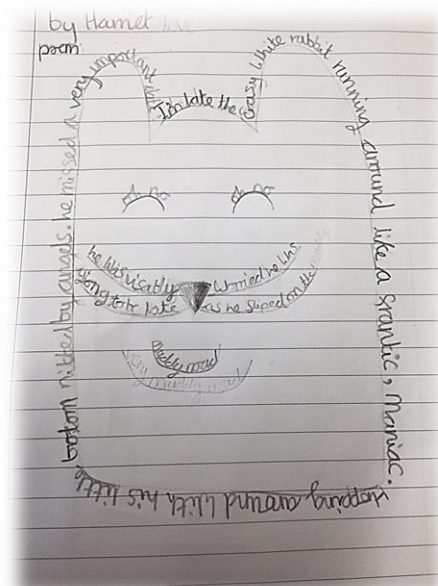 by Hamet love
poem
I'm late the
Crasy White rabbit running around like a frantic, maniac.
Hopping around With his little
botom nitted by angels. he missed a very important
oh no oh no
he was visably worried he Was
going to be late as he sliped on the
muddy road
very muddy road